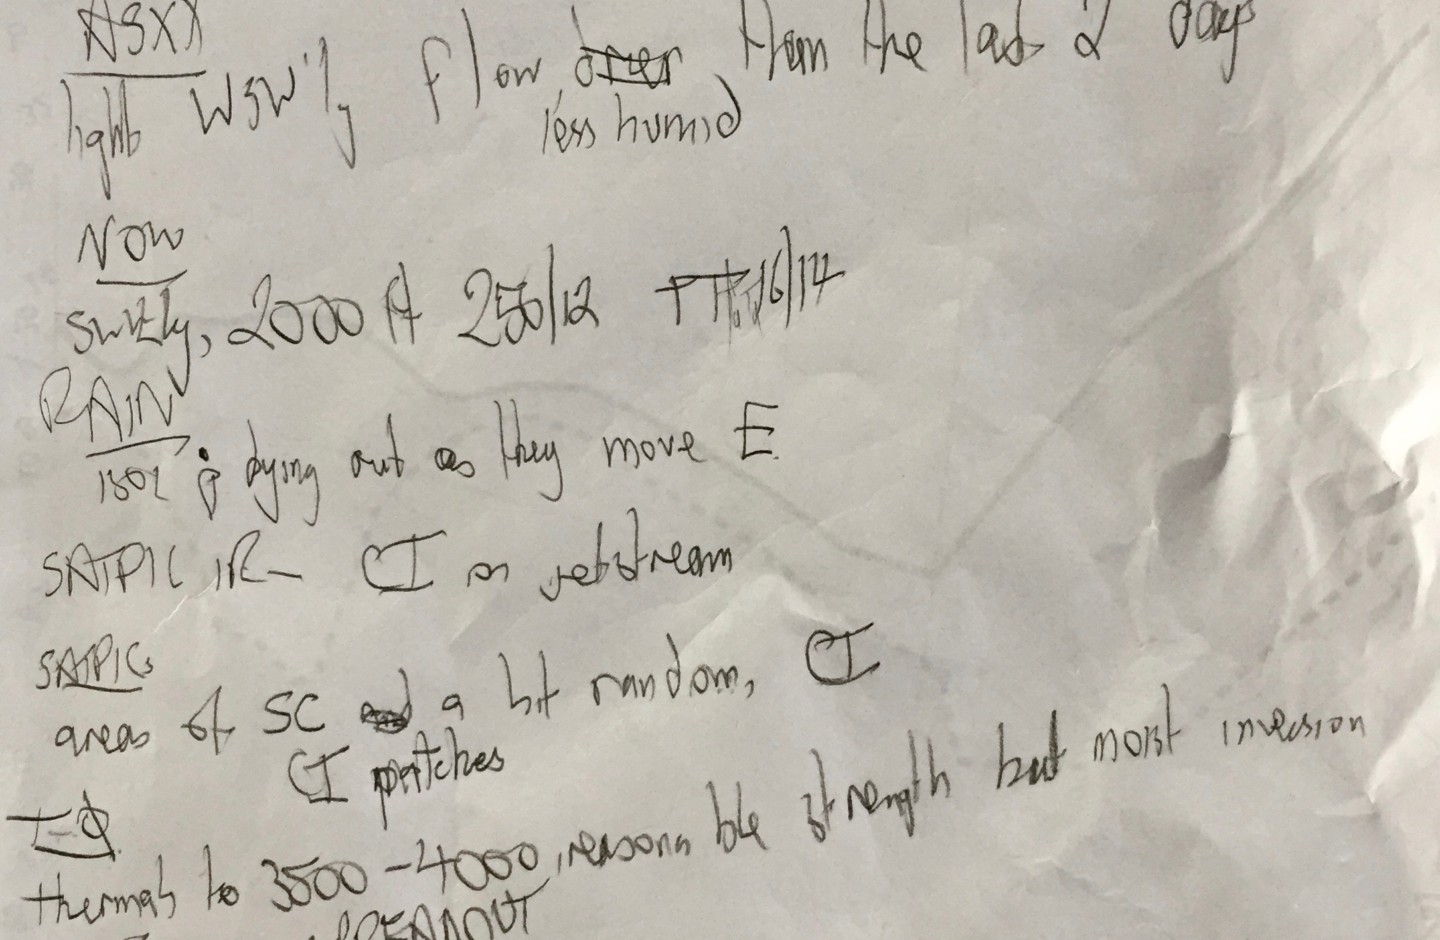 ASXX
light WSW'ly flow over than the last 2 days
less humid
NOW
SW'ly, 2000 ft 250/12 TTd 16/14
RAIN
isol dying out as they move E
SATPIC IR - CI on jetstream
SATPIC
areas of SC and a bit random, CI
CI patches
T-Φ
thermals to 3500-4000, reasonable strength but moist inversion
SPREADOUT